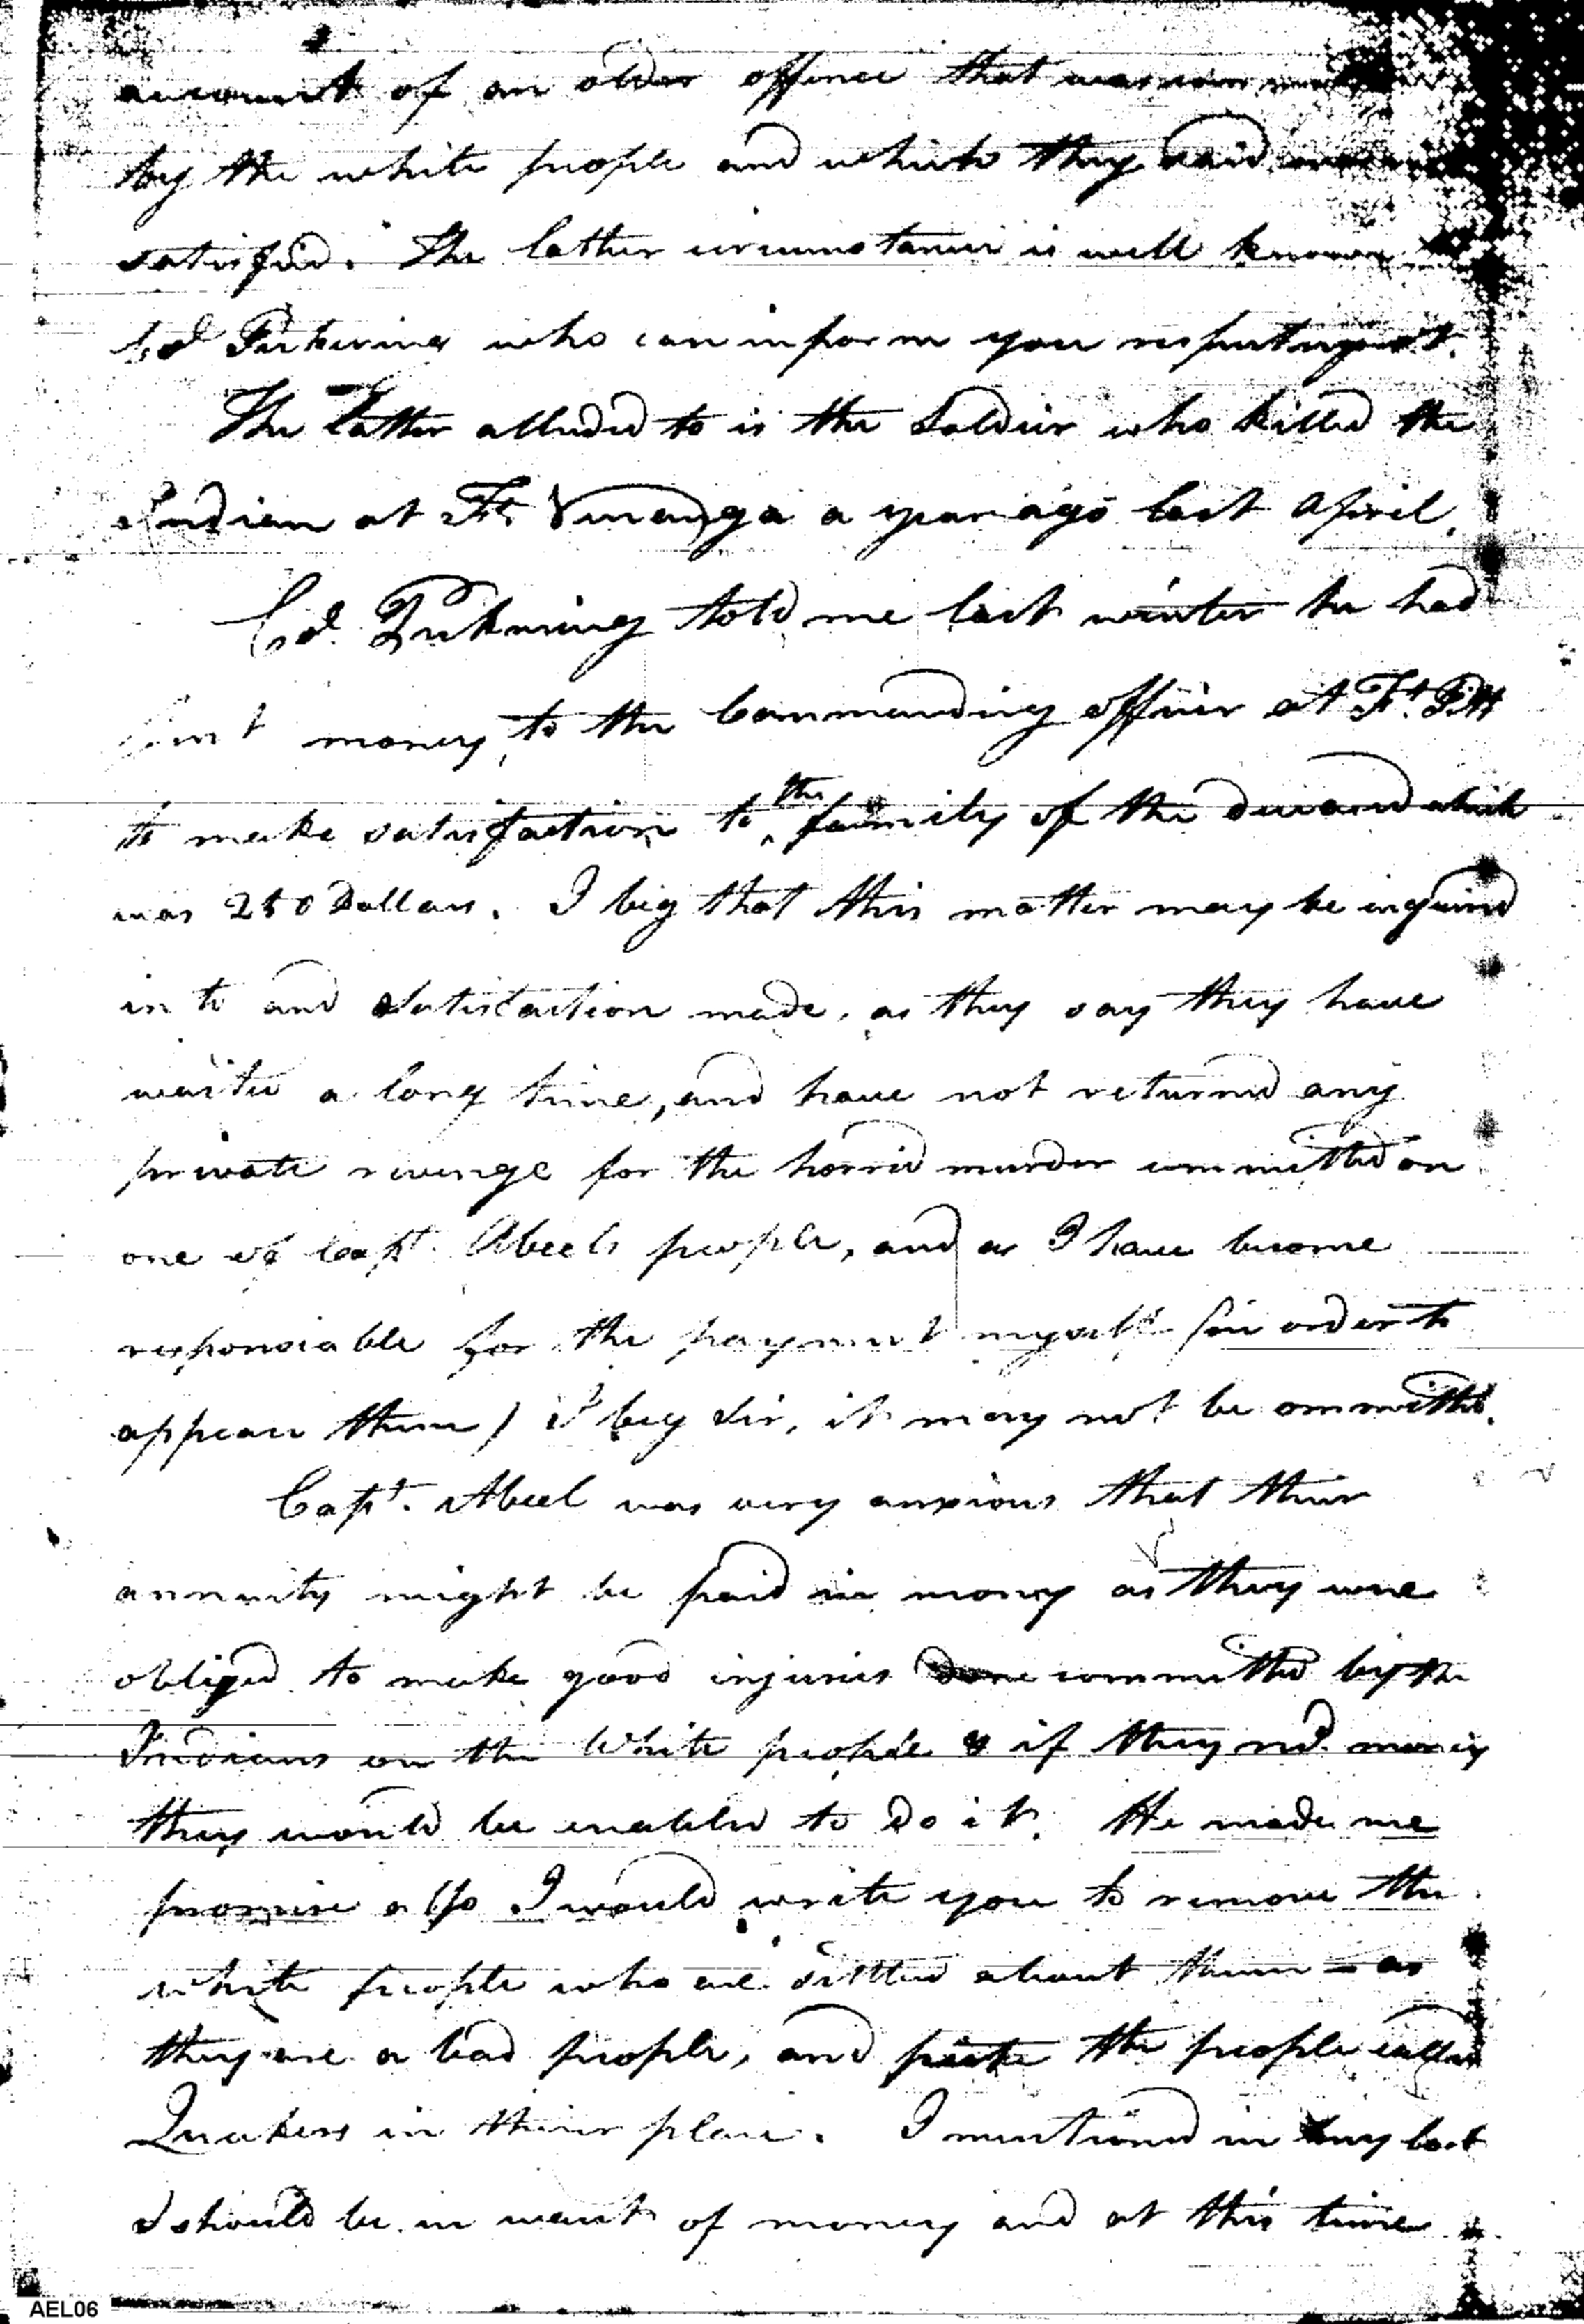 account of an older offence that was
by the white people and which they said
satisfied. The latter circumstance is well known
Col Pickering who can inform you respecting it.
The latter alluded to is the Soldier who killed the
Indian at Ft. Venango a year ago last April.
Col. Pickering told me last winter he had
sent money, to the Commanding officer at Ft. Pitt
to make satisfaction to the family of the deceased which
was 250 Dollars. I beg that this matter may be inquired
in to and Satisfaction made, as they say they have
waited a long time, and have not returned any
private revenge for the horrid murder committed on
one of Capt. Abeels people, and as I have become
responsiable for the payment myself (in order to
appease them) I beg Sir, it may not be ommitted.
Capt. Abeel was very anxious that their
annuity might be paid in money as they were
obliged to make good injuries done committed by the
Indians on the White people & if they recd. money
they would be enabled to do it. He made me
promise also I would write you to remove the
white people who are settled about them - as
they are a bad people, and the people called
Quakers in their place. I mentioned in my last
I should be in want of money and at this time
AEL06